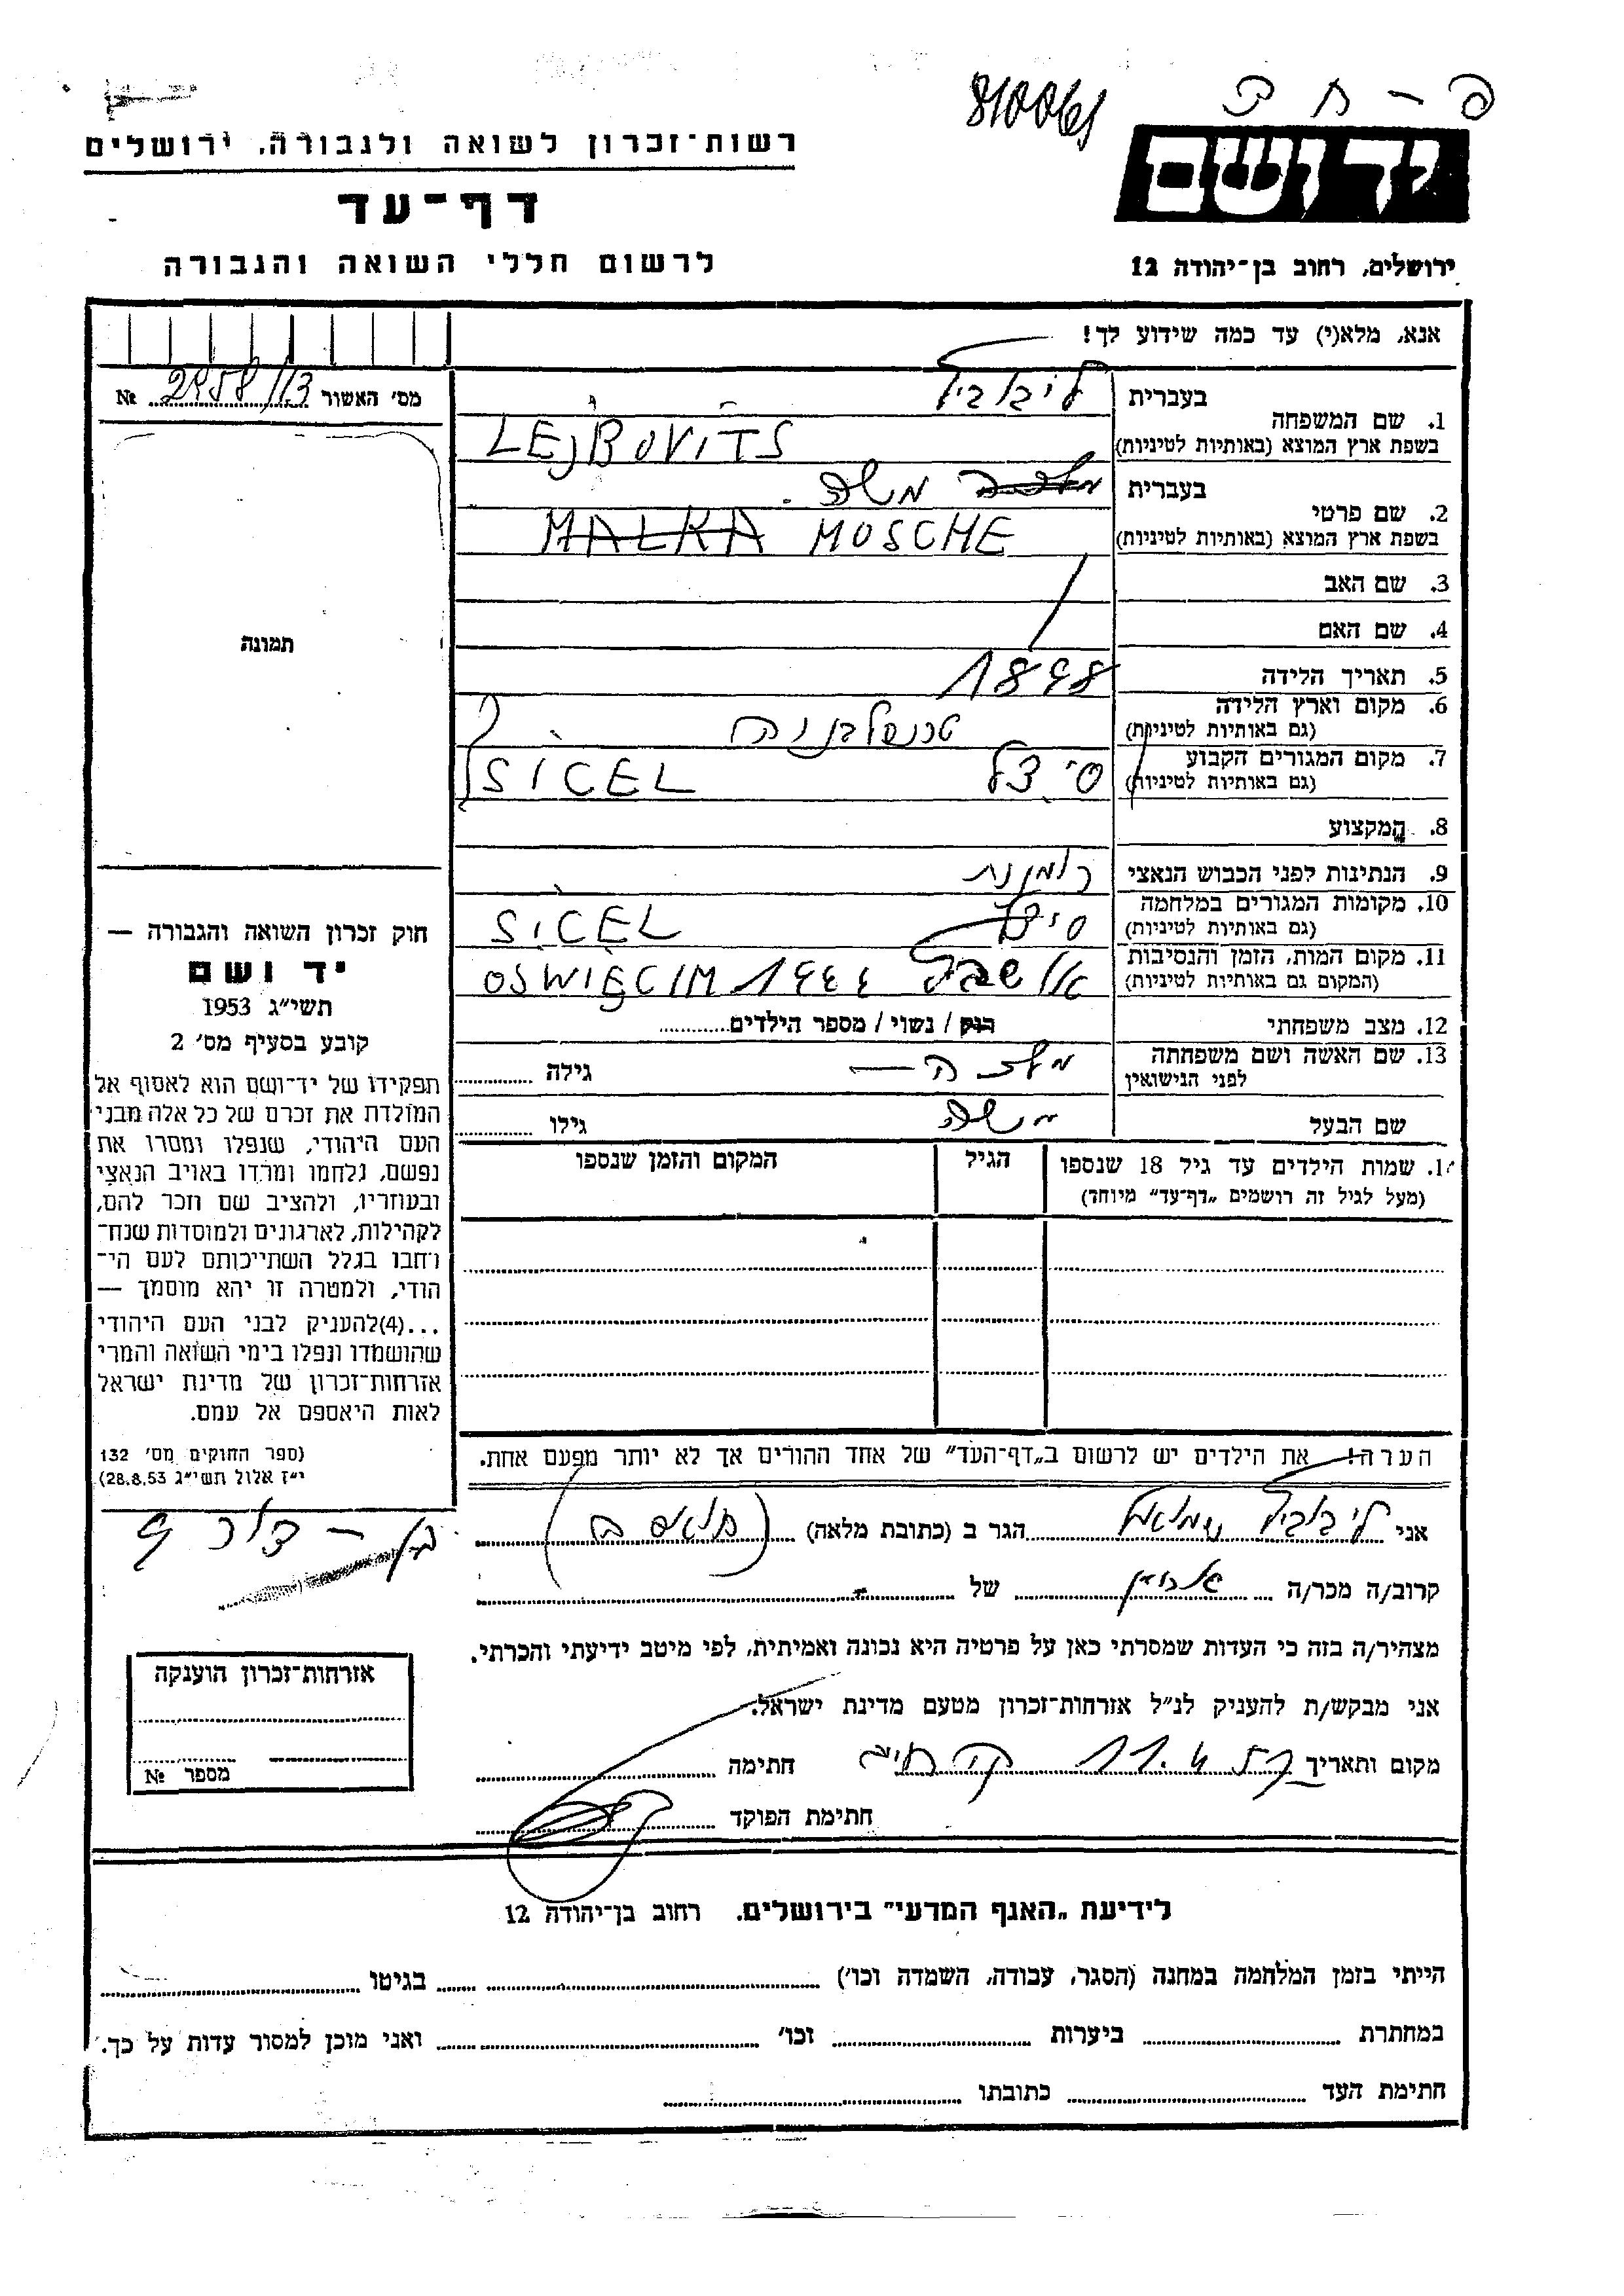 פ - ח ב
810061
יד ושם
רשות־זכרון לשואה ולגבורה, ירושלים
דף־עד
ירושלים, רחוב בן־יהודה 12
לרשום חללי השואה והגבורה
אנא, מלא(י) עד כמה שידוע לך!
מס׳ האשור 2958/113 №
1. שם המשפחה
בעברית ליבוביץ
בשפת ארץ המוצא (באותיות לטיניות) LEJBOVITS
2. שם פרטי
בעברית מלכה משה
בשפת ארץ המוצא (באותיות לטיניות) MALKA MOSCHE
3. שם האב
4. שם האם
5. תאריך הלידה 1898
6. מקום וארץ הלידה טרנסלבניה
(גם באותיות לטיניות)
7. מקום המגורים הקבוע סיצל SICEL
(גם באותיות לטיניות)
8. המקצוע
9. הנתינות לפני הכבוש הנאצי רומנית
10. מקומות המגורים במלחמה סיצל SICEL
(גם באותיות לטיניות)
11. מקום המות, הזמן והנסיבות אושביץ OSWIĘCIM 1944
(המקום גם באותיות לטיניות)
12. מצב משפחתי רווק / נשוי / מספר הילדים
13. שם האשה ושם משפחתה מלכה – גילה
לפני הנישואין
שם הבעל משה גילו
14. שמות הילדים עד גיל 18 שנספו
(מעל לגיל זה רושמים „דף־עד” מיוחד)
הגיל
המקום והזמן שנספו
תמונה
חוק זכרון השואה והגבורה —
יד ושם
תשי״ג 1953
קובע בסעיף מס׳ 2
תפקידו של יד־ושם הוא לאסוף אל
המולדת את זכרם של כל אלה מבני
העם היהודי, שנפלו ומסרו את
נפשם, נלחמו ומרדו באויב הנאצי
ובעוזריו, ולהציב שם וזכר להם,
לקהילות, לארגונים ולמוסדות שנח־
רחבו בגלל השתייכותם לעם הי־
הודי, ולמטרה זו יהא מוסמך —
...(4)להעניק לבני העם היהודי
שהושמדו ונפלו בימי השואה והמרי
אזרחות־זכרון של מדינת ישראל
לאות היאספם אל עמם.
(ספר החוקים מס׳ 132
י״ז אלול תשי״ג 28.8.53)
הערה! את הילדים יש לרשום ב„דף־העד” של אחד ההורים אך לא יותר מפעם אחת.
אני ליבוביץ שמואל הגר ב (כתובת מלאה)
קרוב/ה מכר/ה של
מצהיר/ה בזה כי העדות שמסרתי כאן על פרטיה היא נכונה ואמיתית, לפי מיטב ידיעתי והכרתי.
אני מבקש/ת להעניק לנ״ל אזרחות־זכרון מטעם מדינת ישראל.
מקום ותאריך 11.4 חתימה
חתימת הפוקד
אזרחות־זכרון הוענקה
מספר №
לידיעת „האגף המדעי” בירושלים, רחוב בן־יהודה 12
הייתי בזמן המלחמה במחנה (הסגר, עבודה, השמדה וכו׳) בגיטו
במחתרת ביערות וכו׳ ואני מוכן למסור עדות על כך.
חתימת העד כתובתו